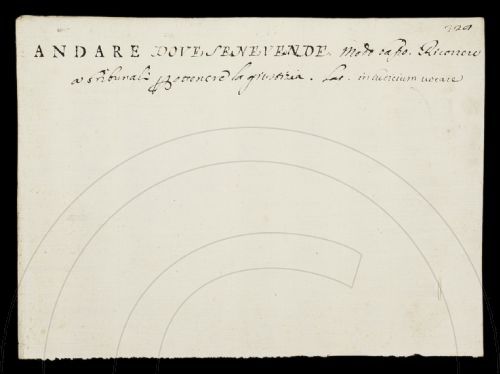 324
ANDARE DOVE SE NE VENDE. Modo basso. Ricorrere
a Tribunali p ottenere la giustizia. Lat. in iudicium vocare